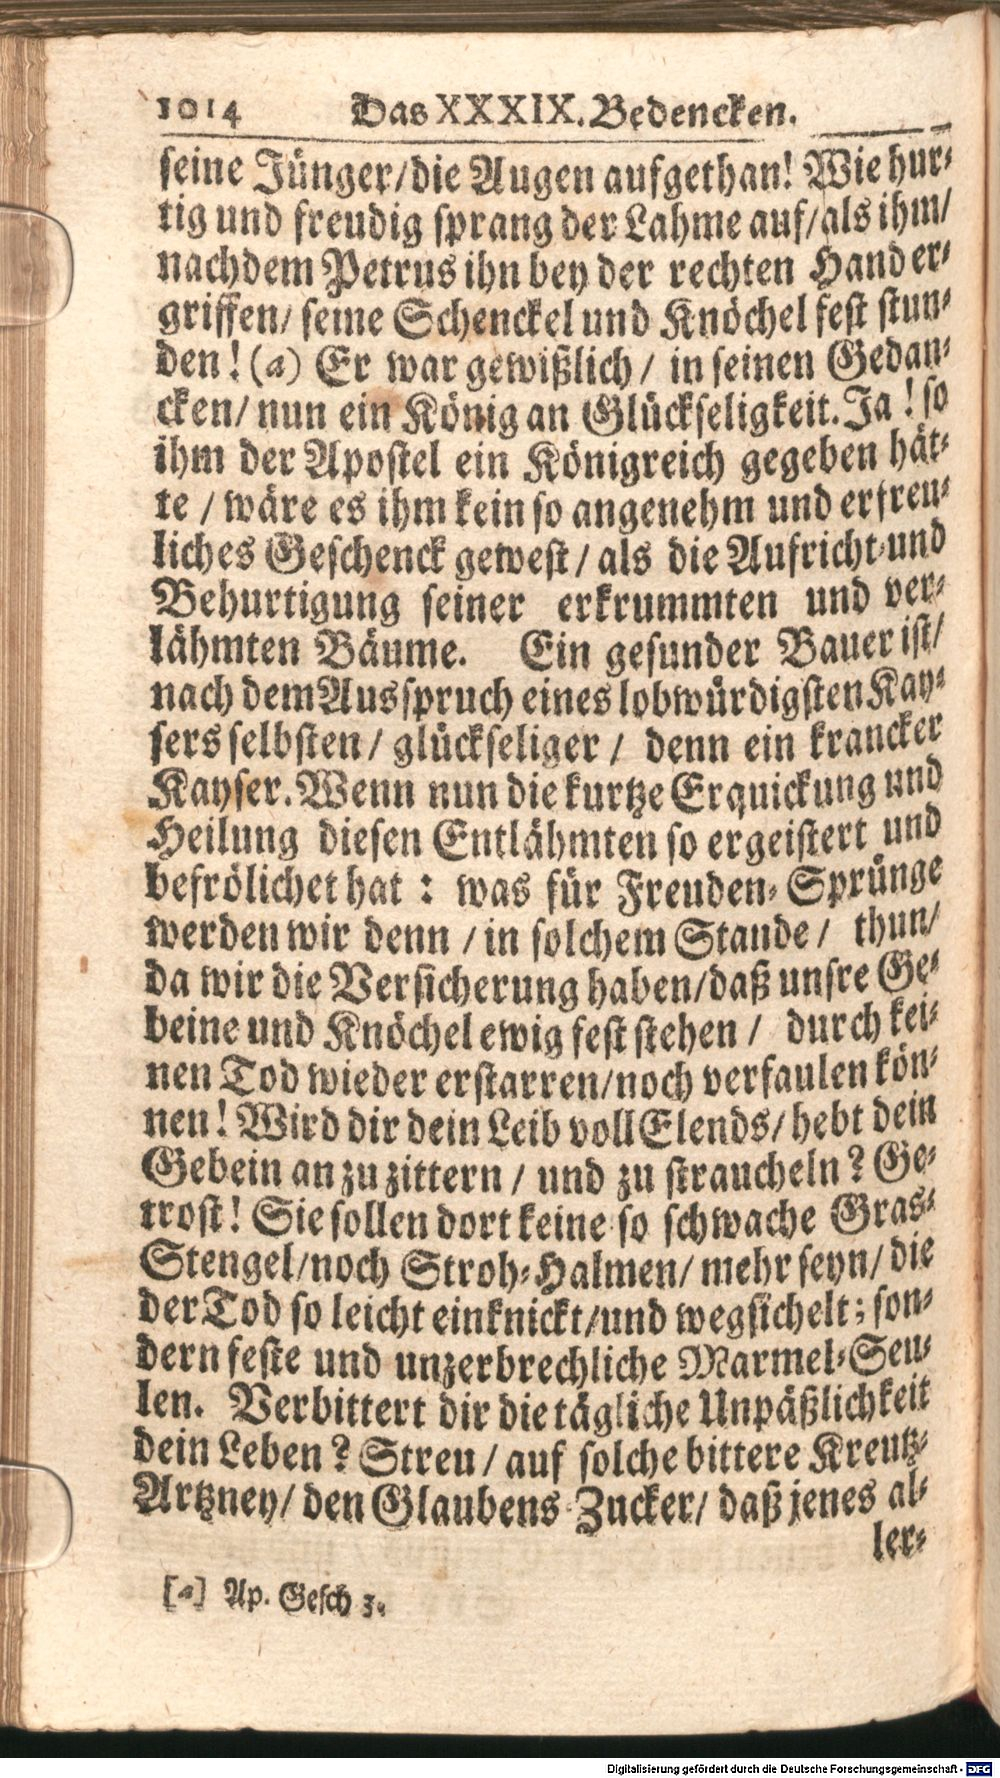 1014 Das XXXIX. Bedencken.
seine Jünger/die Augen aufgethan! Wie hur-
tig und freudig sprang der Lahme auf/als ihm/
nachdem Petrus ihn bey der rechten Hand er-
griffen/ seine Schenckel und Knöchel fest stun-
den! (a) Er war gewißlich / in seinen Gedan-
cken/ nun ein König an Glückseligkeit. Ja! so
ihm der Apostel ein Königreich gegeben hät-
te / wäre es ihm kein so angenehm und erfreu-
liches Geschenck gewest / als die Aufricht-und
Behurtigung seiner erkrummten und ver-
lähmten Bäume. Ein gesunder Bauer ist/
nach dem Ausspruch eines lobwürdigsten Kay-
sers selbsten / glückseliger / denn ein krancker
Kayser. Wenn nun die kurtze Erquickung und
Heilung diesen Entlähmten so ergeistert und
befrölichet hat : was für Freuden-Sprünge
werden wir denn / in solchem Stande / thun/
da wir die Versicherung haben/daß unsre Ge-
beine und Knöchel ewig fest stehen / durch kei-
nen Tod wieder erstarren/noch verfaulen kön-
nen! Wird dir dein Leib voll Elends/ hebt dein
Gebein an zu zittern / und zu straucheln? Ge-
trost! Sie sollen dort keine so schwache Gras-
Stengel/noch Stroh-Halmen/ mehr seyn/ die
der Tod so leicht einknickt/und wegsichelt; son-
dern feste und unzerbrechliche Marmel-Seu-
len. Verbittert dir die tägliche Unpäßlichkeit
dein Leben? Streu / auf solche bittere Kreutz-
Artzney/ den Glaubens-Zucker/ daß jenes al-
ler-
[a] Ap. Gesch 3.
Digitalisierung gefördert durch die Deutsche Forschungsgemeinschaft - DFG